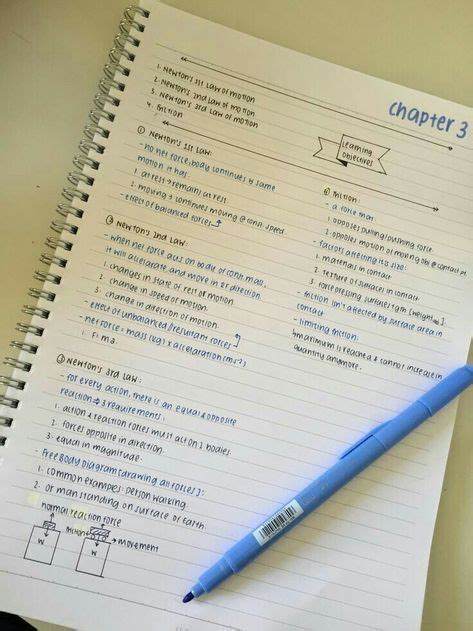 chapter 3
1. Newton's 1st Law of motion
2. Newton's 2nd Law of motion
3. Newton's 3rd Law of motion
4. Friction
Learning
Objectives
① Newton's 1st Law:
- no net force, body continues @ same
motion it has.
1. at rest → remains at rest
2. moving → continues moving @ const. speed.
- effect of balanced forces
② Newton's 2nd Law:
- when net force act on body of const. mass,
it will accelerate and move in its direction.
1. changes in state of rest or motion.
2. change in speed of motion.
3. change in direction of motion.
- effect of unbalanced/resultant forces
- net force = mass (kg) x acceleration (ms⁻²)
1. F = ma.
③ Newton's 3rd Law:
- for every action, there is an equal & opposite
reaction → 3 requirements:
1. action & reaction forces must act on 2 bodies.
2. forces opposite in direction.
3. equal in magnitude.
- Free Body Diagram [drawing all forces]:
1. common examples: person walking.
2. or man standing on surface of Earth.
normal reaction force
W
friction
W
movement
④ Friction:
- a force that:
1. opposes pulling/pushing force.
2. opposes motion of moving obj @ contact pt.
- factors affecting its size:
1. materials in contact
2. texture of surfaces in contact
3. force pressing surfaces tgth [weight]
- friction isn't affected by surface area in
contact
- limiting friction:
maximum is reached & cannot increase in
quantity anymore.